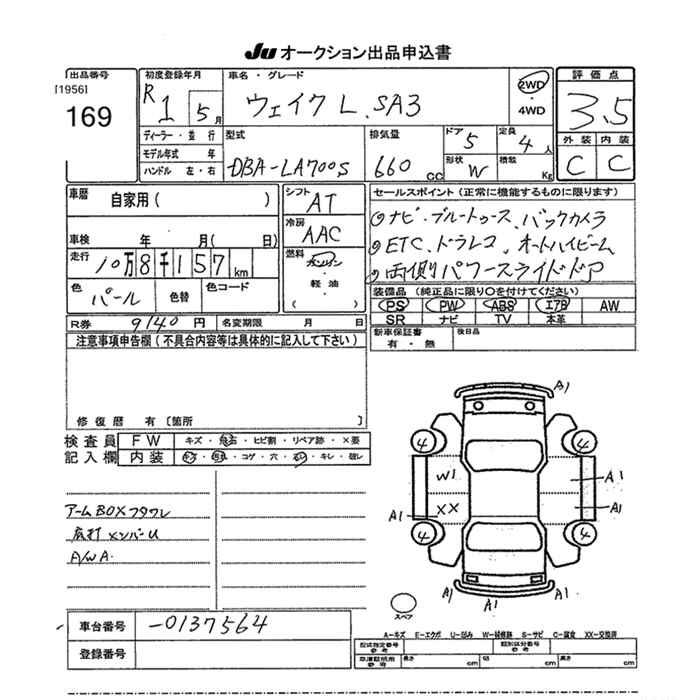 Ju オークション出品申込書
出品番号
[1956]
169
初度登録年月
R 1 5月
車名・グレード
ウェイク L SA3
2WD
・
4WD
評価点
3.5
ディーラー・並行
モデル年式 年
ハンドル 左・右
型式
DBA-LA700S
排気量
660 cc
ドア 5
定員 4人
形状 W
積載 Kg
外装 内装
C C
車歴 自家用( )
車検 年 月( 日)
走行 10万8千157km
色 パール
色替
色コード
シフト AT
冷房 AAC
燃料
ガソリン
・
軽油
( )
セールスポイント(正常に機能するものに限ります)
◎ナビ・ブルートゥース、バックカメラ
◎ETC、ドラレコ、オートハイビーム
◎両側パワースライドドア
装備品(純正品に限り○を付けてください)
PS PW ABS エアB AW
SR ナビ TV 本革
R券 9140円
名変期限 月 日
新車保証書
有・無
後日品
注意事項申告欄(不具合内容等は具体的に記入して下さい)
修復歴 有〔箇所 〕
検査員 FW キズ・飛石・ヒビ割・リペア跡・×要
記入欄 内装 キズ・汚れ・コゲ・穴・スレ・キレ・破レ
アームBOXフタワレ
底打メンバーU
A/W A.
A1
4
4
W1
A1
XX
A1
A1
4
4
A1
A1
A1
スペア
車台番号 -0137564
登録番号
A-キズ E-エクボ U-凹み W-補修跡 S-サビ C-腐食 XX-交換済
型式指定番号
参考
類別区分番号
参考
車庫証明用
参考
長さ cm
幅 cm
高さ cm